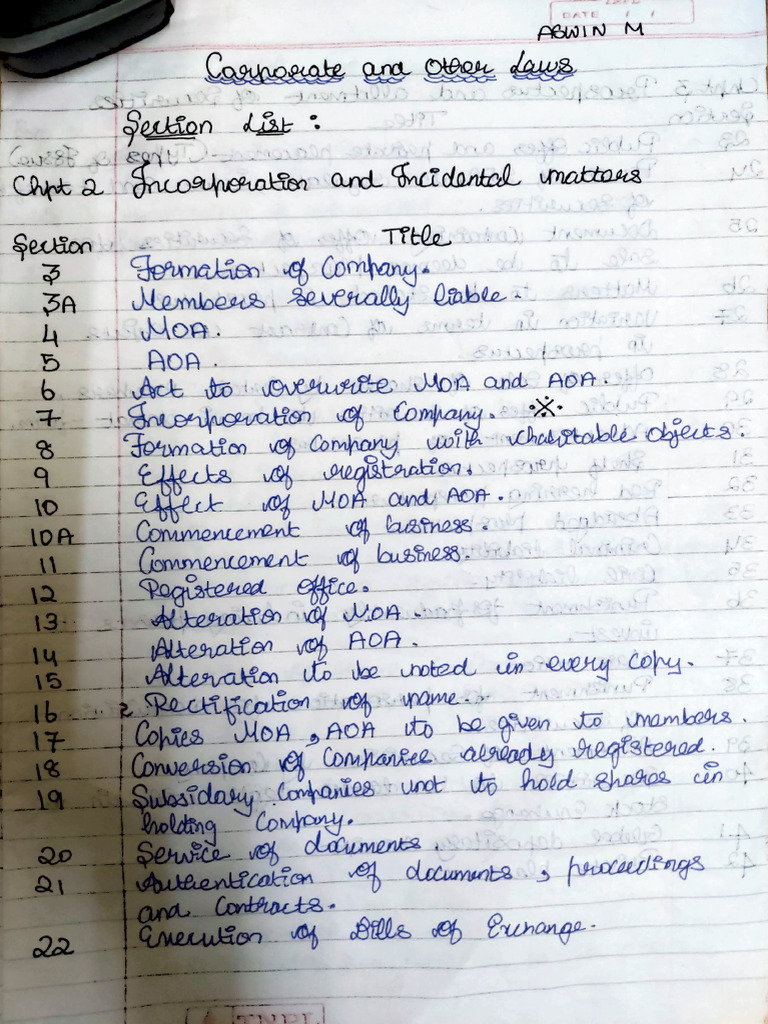 DATE
ABWIN M
Carporate and Other Laws
Section List :
Chpt 2 Incorporation and Incidental matters
Section Title
3 Formation of Company.
3A Members severally liable.
4 MOA.
5 AOA.
6 Act to overwrite MOA and AOA.
7 Incorporation of Company. ※
8 Formation of Company with charitable objects.
9 Effects of registration.
10 Effect of MOA and AOA.
10A Commencement of business.
11 Commencement of business.
12 Registered office.
13 Alteration of MOA.
14 Alteration of AOA.
15 Alteration to be noted in every copy.
16 Rectification of name.
17 Copies MOA, AOA to be given to members.
18 Conversion of Companies already registered.
19 Subsidary Companies not to hold shares in
holding Company.
20 Service of documents.
21 Authentication of documents, proceedings
and Contracts.
22 Execution of Bills of Exchange.